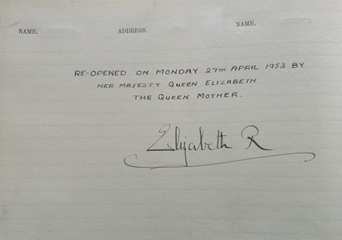 NAME. ADDRESS. NAME.
RE-OPENED ON MONDAY 27TH APRIL 1953 BY
HER MAJESTY QUEEN ELIZABETH
THE QUEEN MOTHER.
Elizabeth R